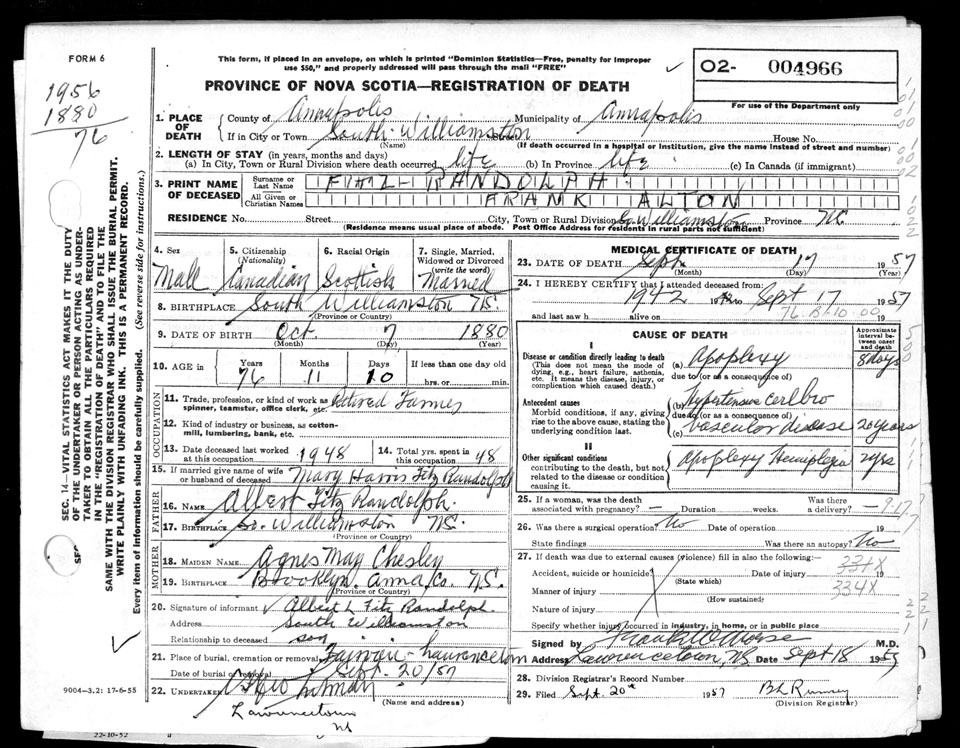 FORM 6
This form, if placed in an envelope, on which is printed "Dominion Statistics—Free, penalty for improper
use $50," and properly addressed will pass through the mail "FREE"
PROVINCE OF NOVA SCOTIA—REGISTRATION OF DEATH
O2- 004966
For use of the Department only
1956
1880
76
1. PLACE OF DEATH
County of Annapolis Municipality of Annapolis
If in City or Town South Williamston Street House No.
(Name) (If death occurred in a hospital or institution, give the name instead of street and number)
2. LENGTH OF STAY (in years, months and days)
(a) In City, Town or Rural Division where death occurred life (b) In Province life (c) In Canada (if immigrant)
3. PRINT NAME OF DECEASED
Surname or Last Name FITZ-RANDOLPH
All Given or Christian Names FRANK ALTON
RESIDENCE No. Street City, Town or Rural Division So. Williamston Province NS
(Residence means usual place of abode. Post Office Address for residents in rural parts not sufficient)
4. Sex Male
5. Citizenship (Nationality) Canadian
6. Racial Origin Scottish
7. Single, Married, Widowed or Divorced (write the word) Married
8. BIRTHPLACE South Williamston NS.
(Province or Country)
9. DATE OF BIRTH Oct. 7 1880
(Month) (Day) (Year)
10. AGE in Years 76 Months 11 Days 10 If less than one day old
hrs. or min.
OCCUPATION
11. Trade, profession, or kind of work as spinner, teamster, office clerk, etc. Retired Farmer
12. Kind of industry or business, as cotton-mill, lumbering, bank, etc.
13. Date deceased last worked at this occupation 1948
14. Total yrs. spent in this occupation 48
15. If married give name of wife or husband of deceased Mary Harris Fitz Randolph
FATHER
16. NAME Albert Fitz Randolph.
17. BIRTHPLACE So. Williamston NS.
(Province or Country)
MOTHER
18. MAIDEN NAME Agnes May Chesley
19. BIRTHPLACE Brooklyn. Anna. Co. NS.
(Province or Country)
20. Signature of informant Albert L Fitz Randolph.
Address South Williamston
Relationship to deceased son
21. Place of burial, cremation or removal Lawrencetown
Date of burial or removal Sept. 20/57
22. UNDERTAKER
(Name and address)
Lawrencetown
NS
9004—3.2: 17-6-55
22-10-52
SEC. 14—VITAL STATISTICS ACT MAKES IT THE DUTY
OF THE UNDERTAKER OR PERSON ACTING AS UNDER-
TAKER TO OBTAIN ALL THE PARTICULARS REQUIRED
IN THE "REGISTRATION OF DEATH" AND TO FILE THE
SAME WITH THE DIVISION REGISTRAR WHO SHALL ISSUE THE BURIAL PERMIT.
WRITE PLAINLY WITH UNFADING INK. THIS IS A PERMANENT RECORD.
Every item of information should be carefully supplied. (See reverse side for instructions.)
MEDICAL CERTIFICATE OF DEATH
23. DATE OF DEATH Sept. 17 1957
(Month) (Day) (Year)
24. I HEREBY CERTIFY that I attended deceased from:
1942 to Sept 17 1957
and last saw h alive on 19
CAUSE OF DEATH
Approximate interval between onset and death
I
Disease or condition directly leading to death
(This does not mean the mode of dying, e.g., heart failure, asthenia, etc. It means the disease, injury, or complication which caused death.)
(a) Apoplexy 8 days
due to (or as a consequence of)
Antecedent causes
Morbid conditions, if any, giving rise to the above cause, stating the underlying condition last.
(b) Hypertensive cerebro
due to (or as a consequence of)
(c) vascular disease 20 years
II
Other significant conditions
contributing to the death, but not related to the disease or condition causing it.
Apoplexy Hemiplegia
25. If a woman, was the death associated with pregnancy? — Duration weeks. Was there a delivery? —
26. Was there a surgical operation? No Date of operation 19
State findings Was there an autopsy? No
27. If death was due to external causes (violence) fill in also the following:—
Accident, suicide or homicide? Date of injury 19
(State which)
Manner of injury 334X
(How sustained)
Nature of injury
Specify whether injury occurred in industry, in home, or in public place
Signed by Frank W Morse M.D.
Address Lawrencetown, NS Date Sept 18 1957
28. Division Registrar's Record Number
29. Filed Sept. 20th 1957
(Division Registrar)